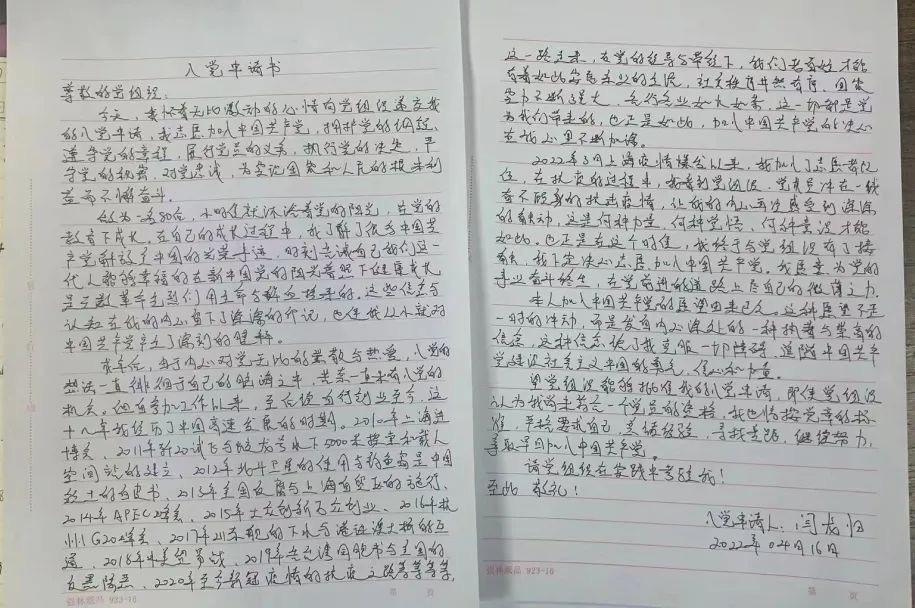 入党申请书
尊敬的党组织:
今天，我怀着无比激动的心情向党组织递交我
的入党申请，我志愿加入中国共产党，拥护党的纲领，
遵守党的章程，履行党员的义务，执行党的决定，严
守党的纪律，对党忠诚，为实现国家和人民的根本利
益而不懈奋斗。
做为一名80后，从小就沐浴着党的阳光，在党的
教育下成长。在自己的成长过程中，我了解了很多中国共
产党解放了中国的光荣事迹，时刻告诫自己我们这一
代人能够幸福的在新中国党的阳光普照下健康成长
是无数革命先烈们用生命与鲜血换来的。这些信念与
认知在我的内心留下了深深的印记，也使我从小就对
中国共产党产生了深刻的理解。
成年后，由于内心对党无比的崇敬与热爱，入党的
想法一直徘徊于自己的脑海之中，苦于一直未有入党的
机会。但自参加工作以来，至后续自行创业至今，这
十八年我经历了中国高速发展的时期。2010年上海世
博会、2011年歼20试飞与蛟龙号水下5000米探索和载人
空间站的建立、2012年北斗卫星的使用与钓鱼岛是中国
领土的白皮书、2013年全国反腐与上海自贸区的施行、
2014年APEC峰会、2015年大众创新万众创业、2016年杭
州G20峰会、2017年山东舰的下水与港珠澳大桥的互
通、2018年中美贸易战、2019年 与全国的
反黑除恶、2020年至今新冠疫情的抗疫之路等等等等，
盛林纸品 923-16 第 页
这一路走来，在党的领导与带领下，我们老百姓才能
有着如此安居乐业的生活，社会秩序井然有序，国家
实力不断强大，各行各业如火如荼，这一切都是党
为我们带来的，也正是如此，加入中国共产党的决心
在我心里不断加深。
2022年3月上海疫情爆发以来，我加入了志愿者队
伍，在抗疫的过程中，我看到党组织、党员冲在一线
奋不顾身的抗击疫情，让我的内心再次感受到深深
的触动，这是何种力量，何种觉悟、何种意识才能
如此。也正是在这个时候，我终于与党组织有了接
触，我下定决心志愿加入中国共产党。我愿意为党的
事业奋斗终生，在党前进的道路上尽自己的微薄之力。
本人加入中国共产党的愿望由来已久。这种愿望不是
一时的冲动，而是发自内心深处的一种执着与崇高的
信念，这种信念给了我克服一切障碍、追随中国共产
党建设社会主义中国的勇气、信心和力量。
望党组织能够批准我的入党申请，即使党组织
认为我尚未符合一个党员的资格，我也将按党章的标
准，严格要求自己，总结经验，寻找差距，继续努力，
争取早日加入中国共产党。
请党组织在实践中考验我！
至此 敬礼！
入党申请人：闫龙
2022年04月16日
盛林纸品 923-16 第 页